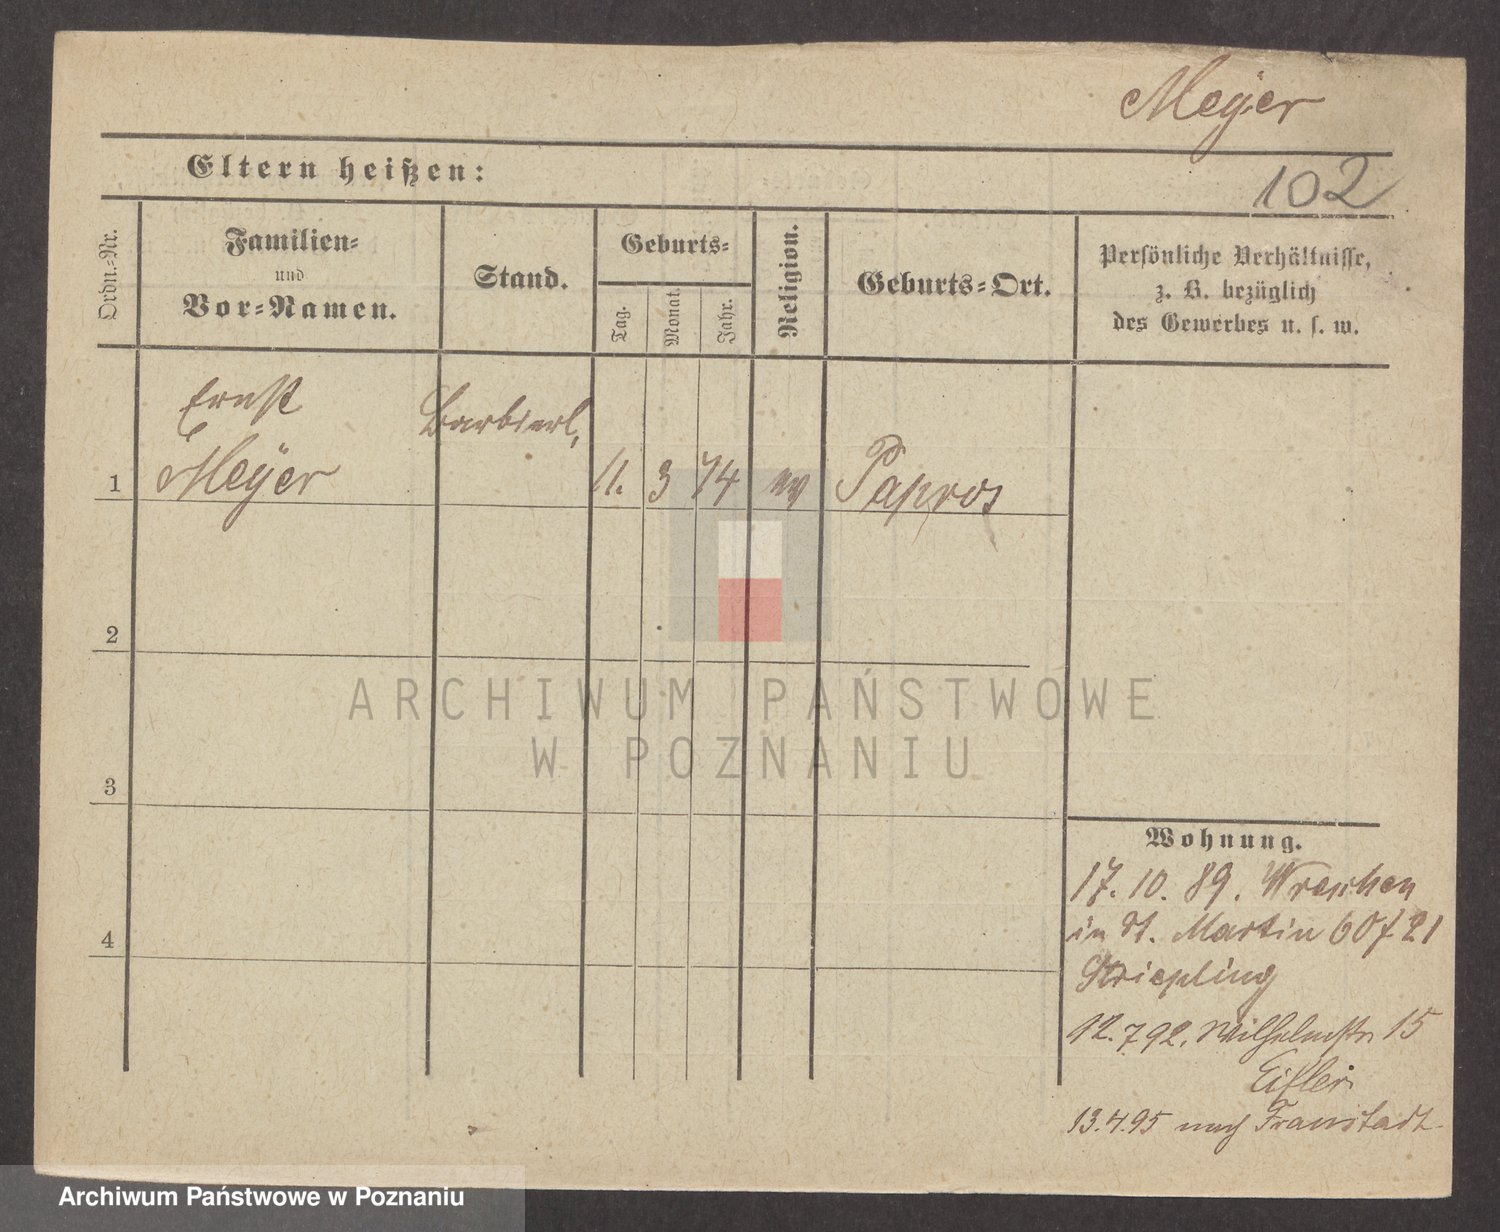 Meyer
102
Eltern heißen:
Ordn.-Nr.
Familien-
und
Vor-Namen.
Stand.
Geburts-
Tag.
Monat.
Jahr.
Religion.
Geburts-Ort.
Persönliche Verhältnisse,
z. B. bezüglich
des Gewerbes u. s. w.
1
Ernst
Meÿer
Barbierl,
11. 3 74 ev Papros
2
3
4
Wohnung.
17. 10. 89. Wreschen
in St. Martin 60 f 21
Striepling
12. 7 92. Wilhelmstr 15
Eifler
13.4.95 nach Fraustadt
ARCHIWUM PAŃSTWOWE
W POZNANIU
Archiwum Państwowe w Poznaniu